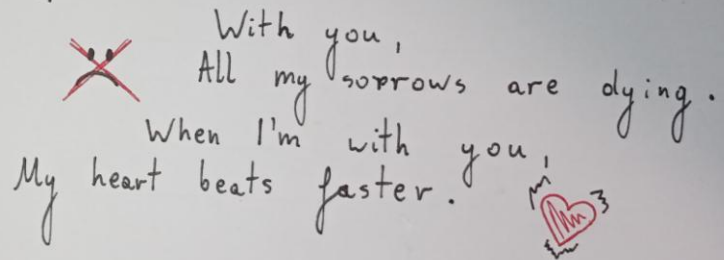 With you,
All my sorrows are dying.
When I'm with you,
My heart beats faster.